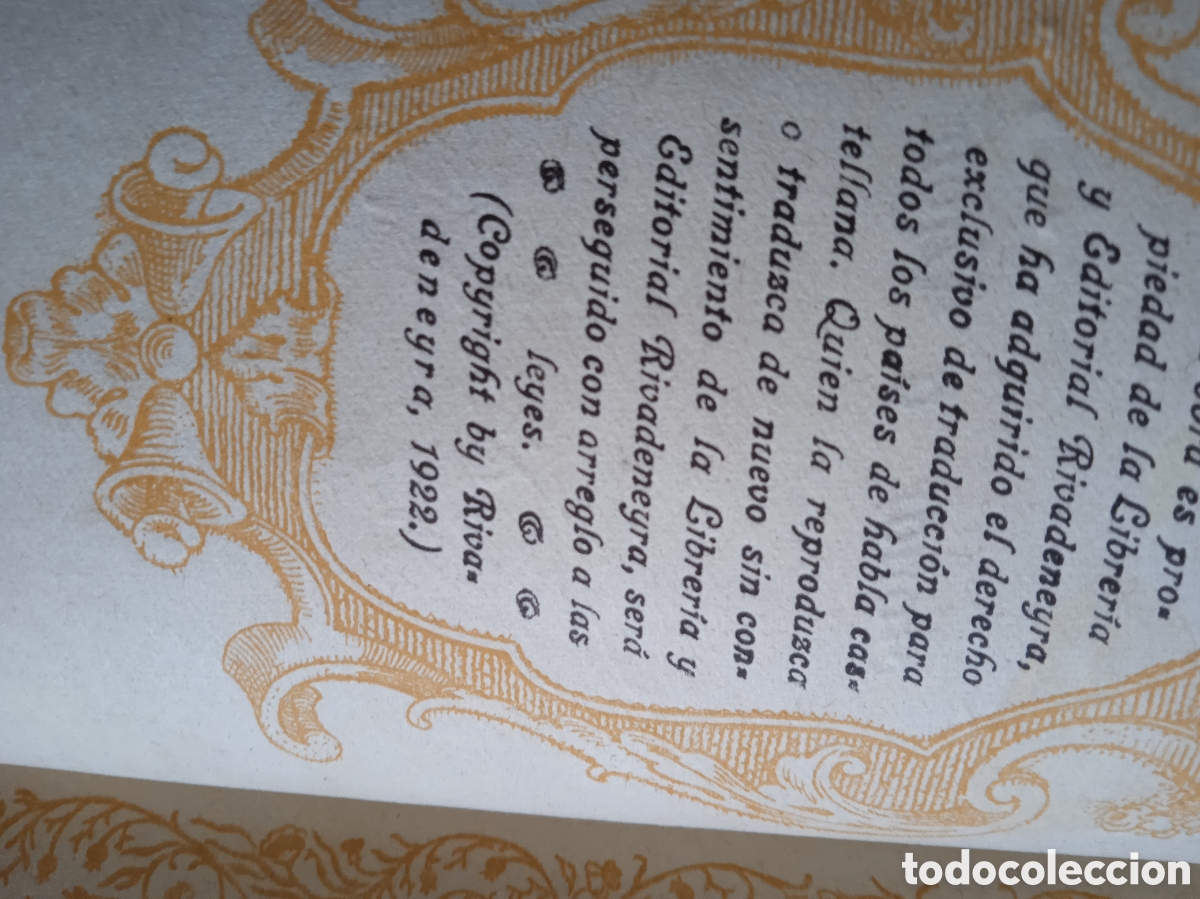 es pro=
piedad de la Librería
y Editorial Rivadeneyra,
que ha adquirido el derecho
exclusivo de traducción para
todos los países de habla cas=
tellana. Quien la reproduzca
o traduzca de nuevo sin con=
sentimiento de la Librería y
Editorial Rivadeneyra, será
perseguido con arreglo a las
leyes.
(Copyright by Riva=
deneyra, 1922.)
todocoleccion